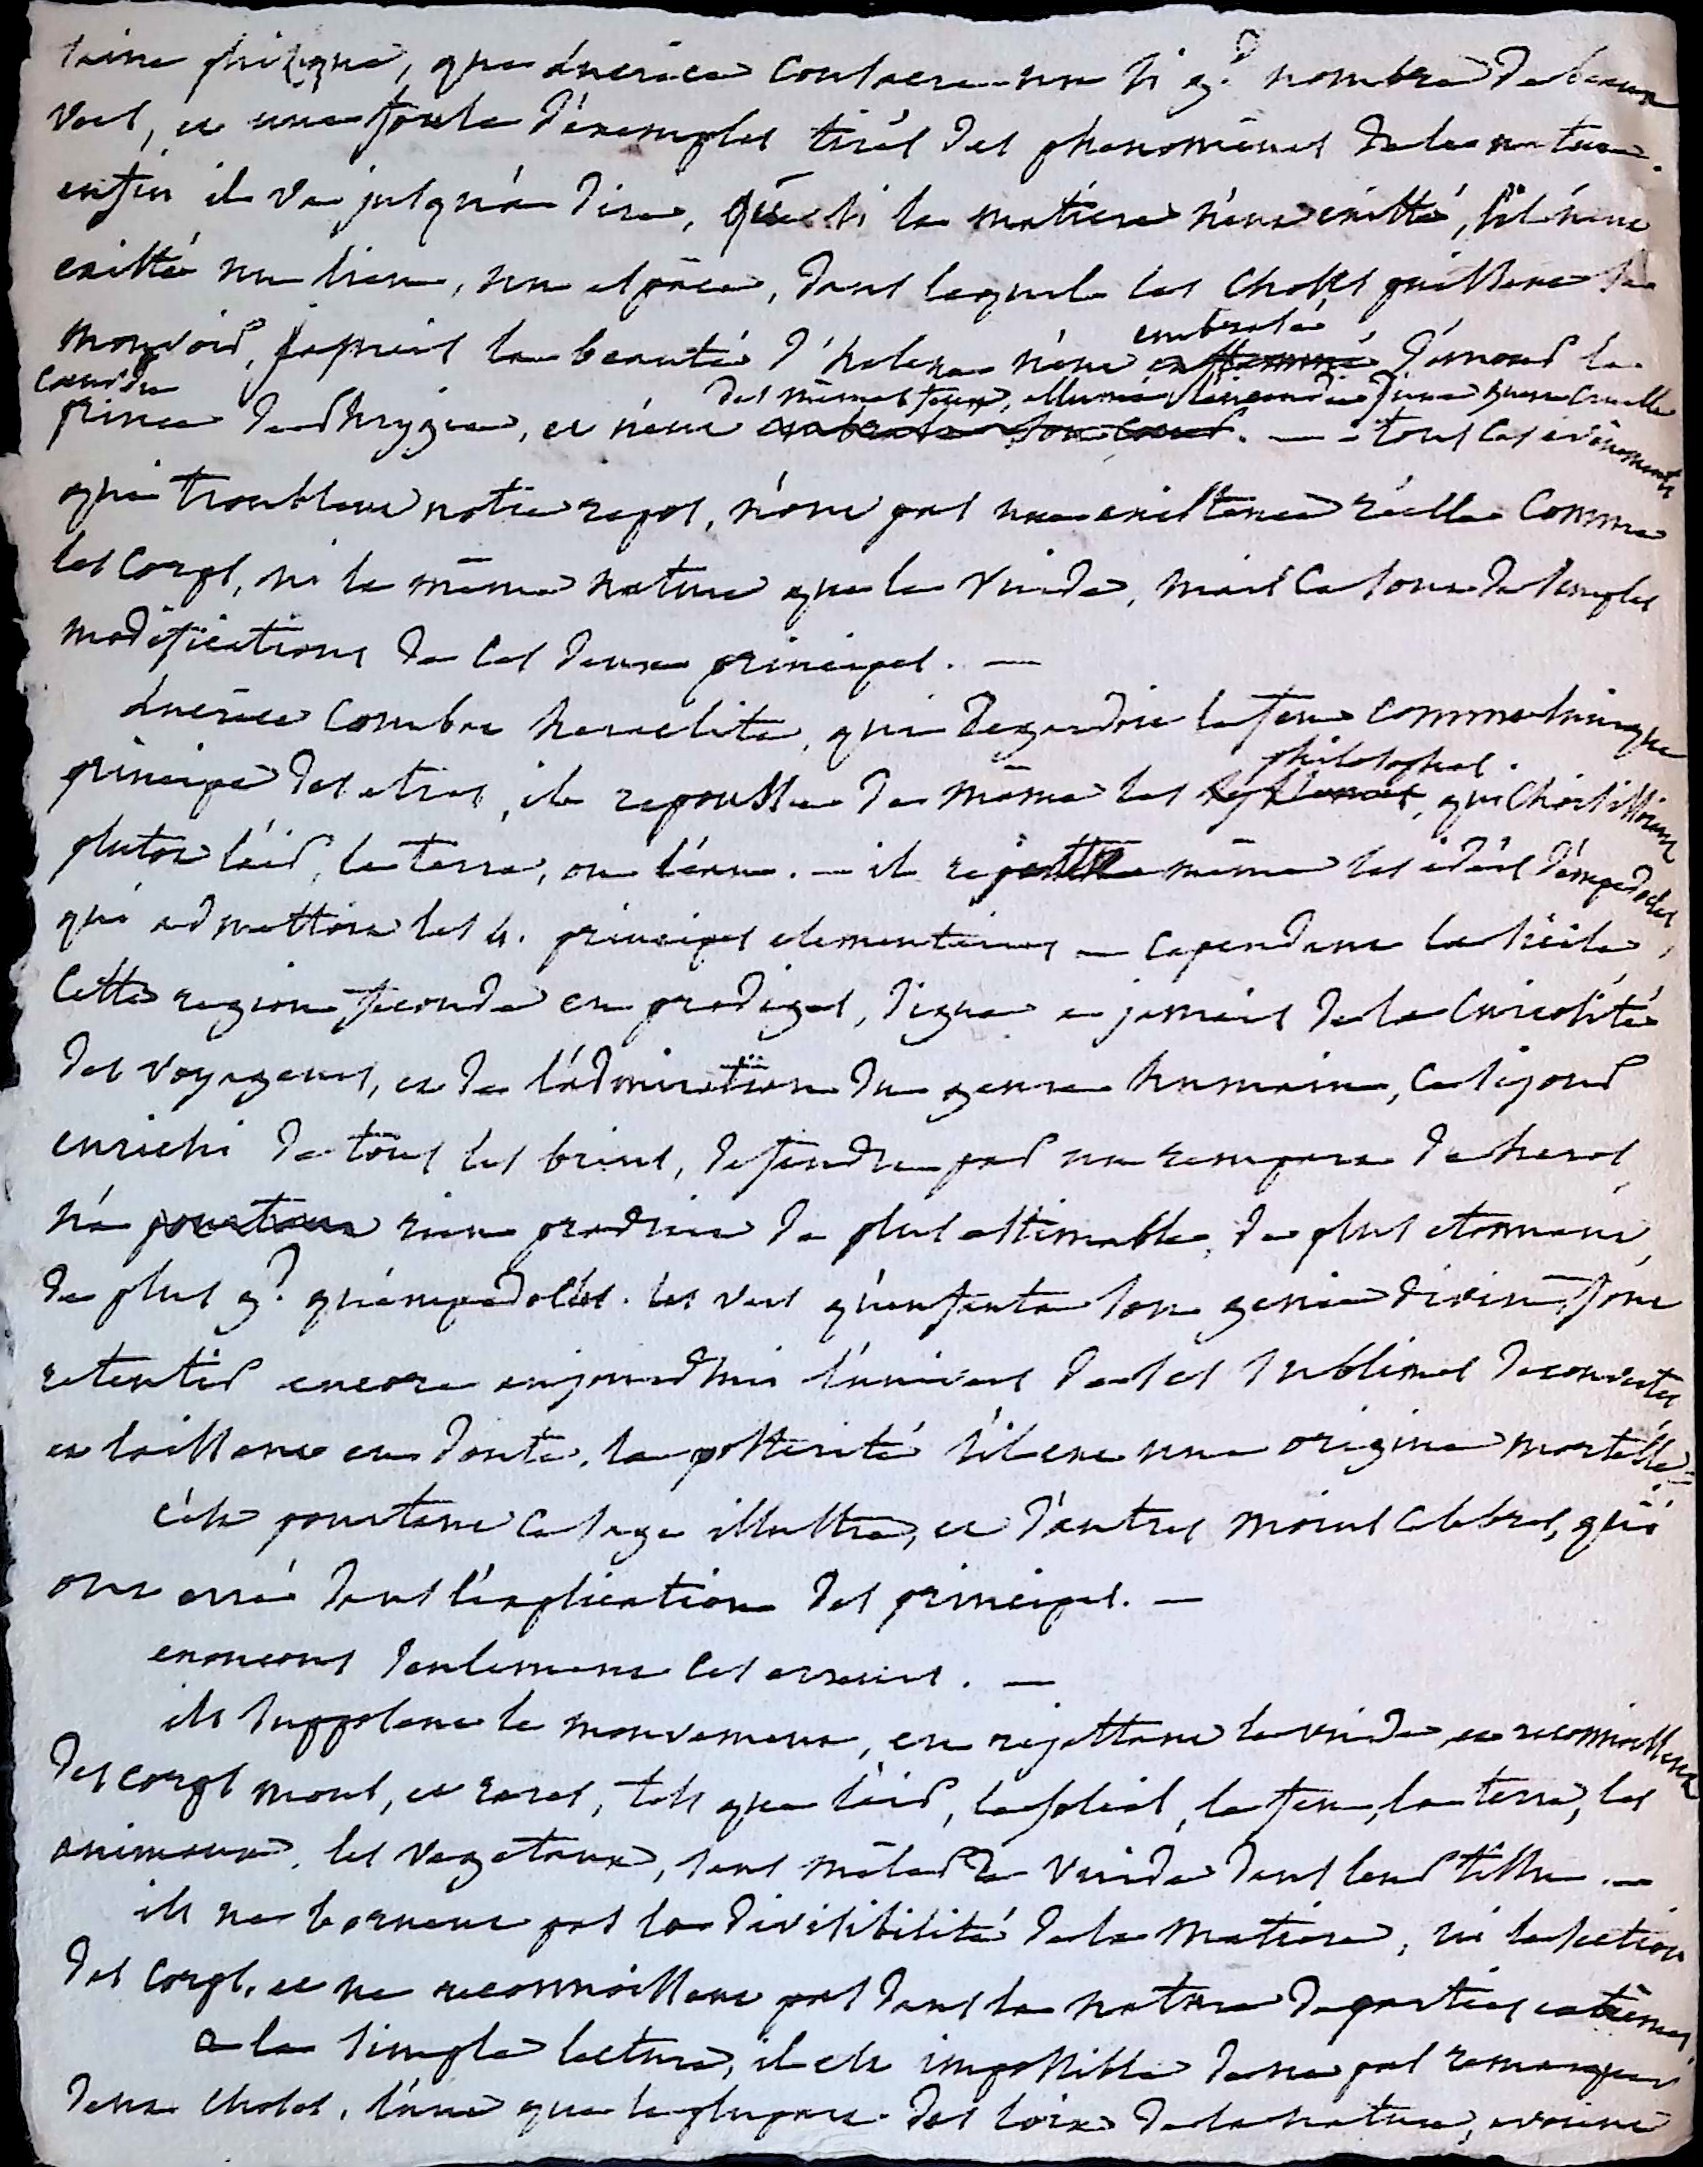 taine phizique, que lucrèce consacre un si gd nombre de beaux
vers, et une foule d'éxemples tirés des phenomènes de la nature.
enfin il va jusqu'à dire, que si la matiere n'eut existé, s'il n'eut
existé un lieu, un espace, dans lequel les choses puissent se
mouvoir, jamais la beauté d'helene n'eut embrasé d'amour le
coeur du
prince de phrygie, et n'eut des mêmes feux, allumé l'incendie d'une guerre cruelle
embrasé son coeur. — tous les evènements
qui troublent notre repos, n'ont pas une existence réelle comme
les corps, ni la même nature que le vuide, mais ce sont de simples
modifications de ces deux principes. —
lucrèce combat heraclite, qui regardoit le feu comme l'unique
principe des etres, il repousse de même les philosophes, qui choisissoient
plutot l'air, la terre, ou l'eau. — il rejette même les idées d'empedocles,
qui admettoit les 4. principes elementaires — cependant la sicile,
cette region feconde en prodiges, digne a jamais de la curiosité
des voyageurs, et de l'admiration du genre humain, ce sejour
enrichi de tous les biens, defendu par un rempart de heros,
n'a pourtant rien produit de plus estimable, de plus etonnant,
de plus gd qu'empedocles. les vers qu'enfanta son genie divin, font
retentir encore aujourdhui l'univers de ses sublimes decouvertes
et laissent en doute la posterité s'il eut une origine mortelle. —
c'est pourtant ce sage illustre, et d'autres moins celebres, qui
ont erré dans l'explication des principes. —
enoncons seulement ces erreurs. —
ils supposent le mouvement, en rejettant le vuide, et reconnoissent
des corps mous, et rares, tels que l'air, le soleil, le feu, la terre, les
animaux, les vegetaux, sans mêler de vuide dans leur tissu. —
ils ne bornent pas la divisibilité de la matiere, ni la section
des corps, et ne reconnoissent pas dans la nature de parties extrêmes.
a la simple lecture, il est impossible de ne pas remarquer
deux choses, l'une que la plupart des loix de la nature, avoient